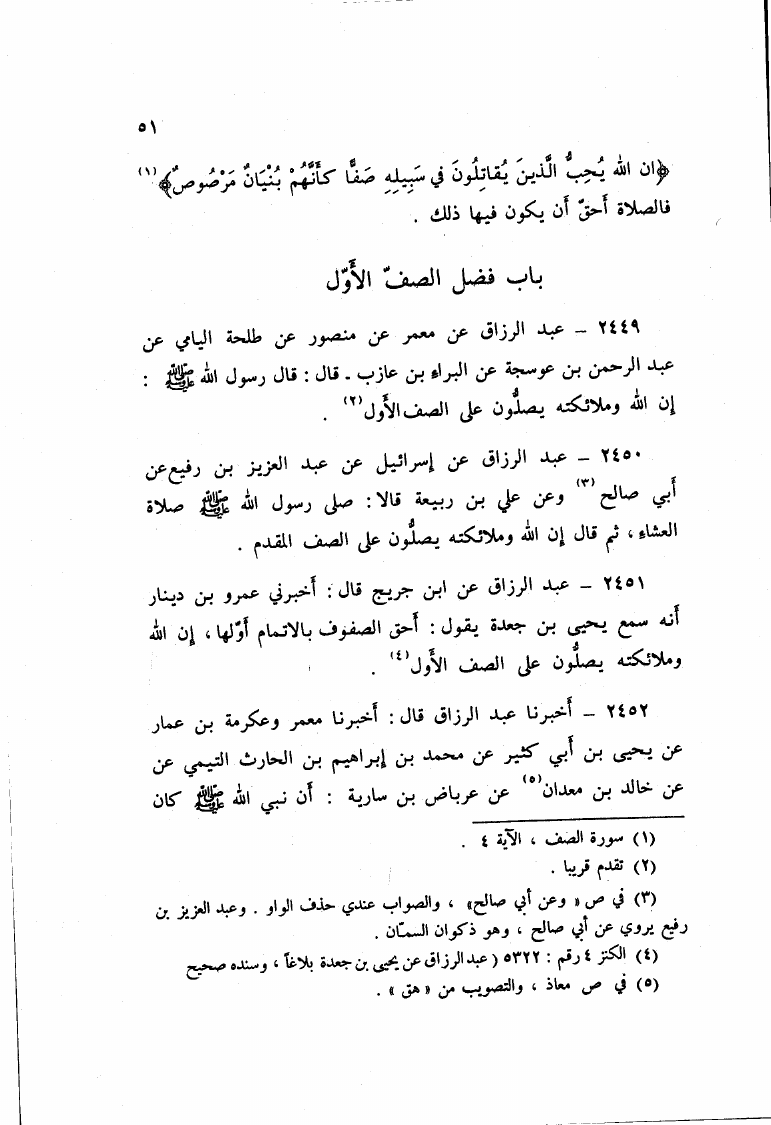 ٥١
﴿ان الله يُحِبُّ الَّذينَ يُقاتِلُونَ في سَبِيلِهِ صَفًّا كأَنَّهُمْ بُنْيَانٌ مَرْصُوصٌ﴾(١)
فالصلاة أحقّ أن يكون فيها ذلك .
باب فضل الصفّ الأَوّل
٢٤٤٩ – عبد الرزاق عن معمر عن منصور عن طلحة اليامي عن
عبد الرحمن بن عوسجة عن البراء بن عازب ـ قال : قال رسول الله ﷺ :
إن الله وملائكته يصلُّون على الصف الأَول(٢) .
٢٤٥٠ – عبد الرزاق عن إسرائيل عن عبد العزيز بن رفيع عن
أبي صالح(٣) وعن علي بن ربيعة قالا : صلى رسول الله ﷺ صلاة
العشاء ، ثم قال إن الله وملائكته يصلُّون على الصف المقدم .
٢٤٥١ – عبد الرزاق عن ابن جريج قال : أخبرني عمرو بن دينار
أَنه سمع يحيى بن جعدة يقول : أحق الصفوف بالاتمام أوّلها ، إن الله
وملائكته يصلُّون على الصف الأَول(٤) .
٢٤٥٢ – أَخبرنا عبد الرزاق قال : أَخبرنا معمر وعكرمة بن عمار
عن يحيى بن أَبي كثير عن محمد بن إبراهيم بن الحارث التيمي عن
عن خالد بن معدان(٥) عن عرباض بن سارية : أَن نبي الله ﷺ كان
(١) سورة الصف ، الآية ٤ .
(٢) تقدم قريبا .
(٣) في ص « وعن أبي صالح» ، والصواب عندي حذف الواو . وعبد العزيز بن
رفيع يروي عن أبي صالح ، وهو ذكوان السمّان .
(٤) الكنز ٤ رقم : ٥٣٢٢ ( عبد الرزاق عن يحيى بن جعدة بلاغاً ، وسنده صحيح
(٥) في ص معاذ ، والتصويب من « هق » .